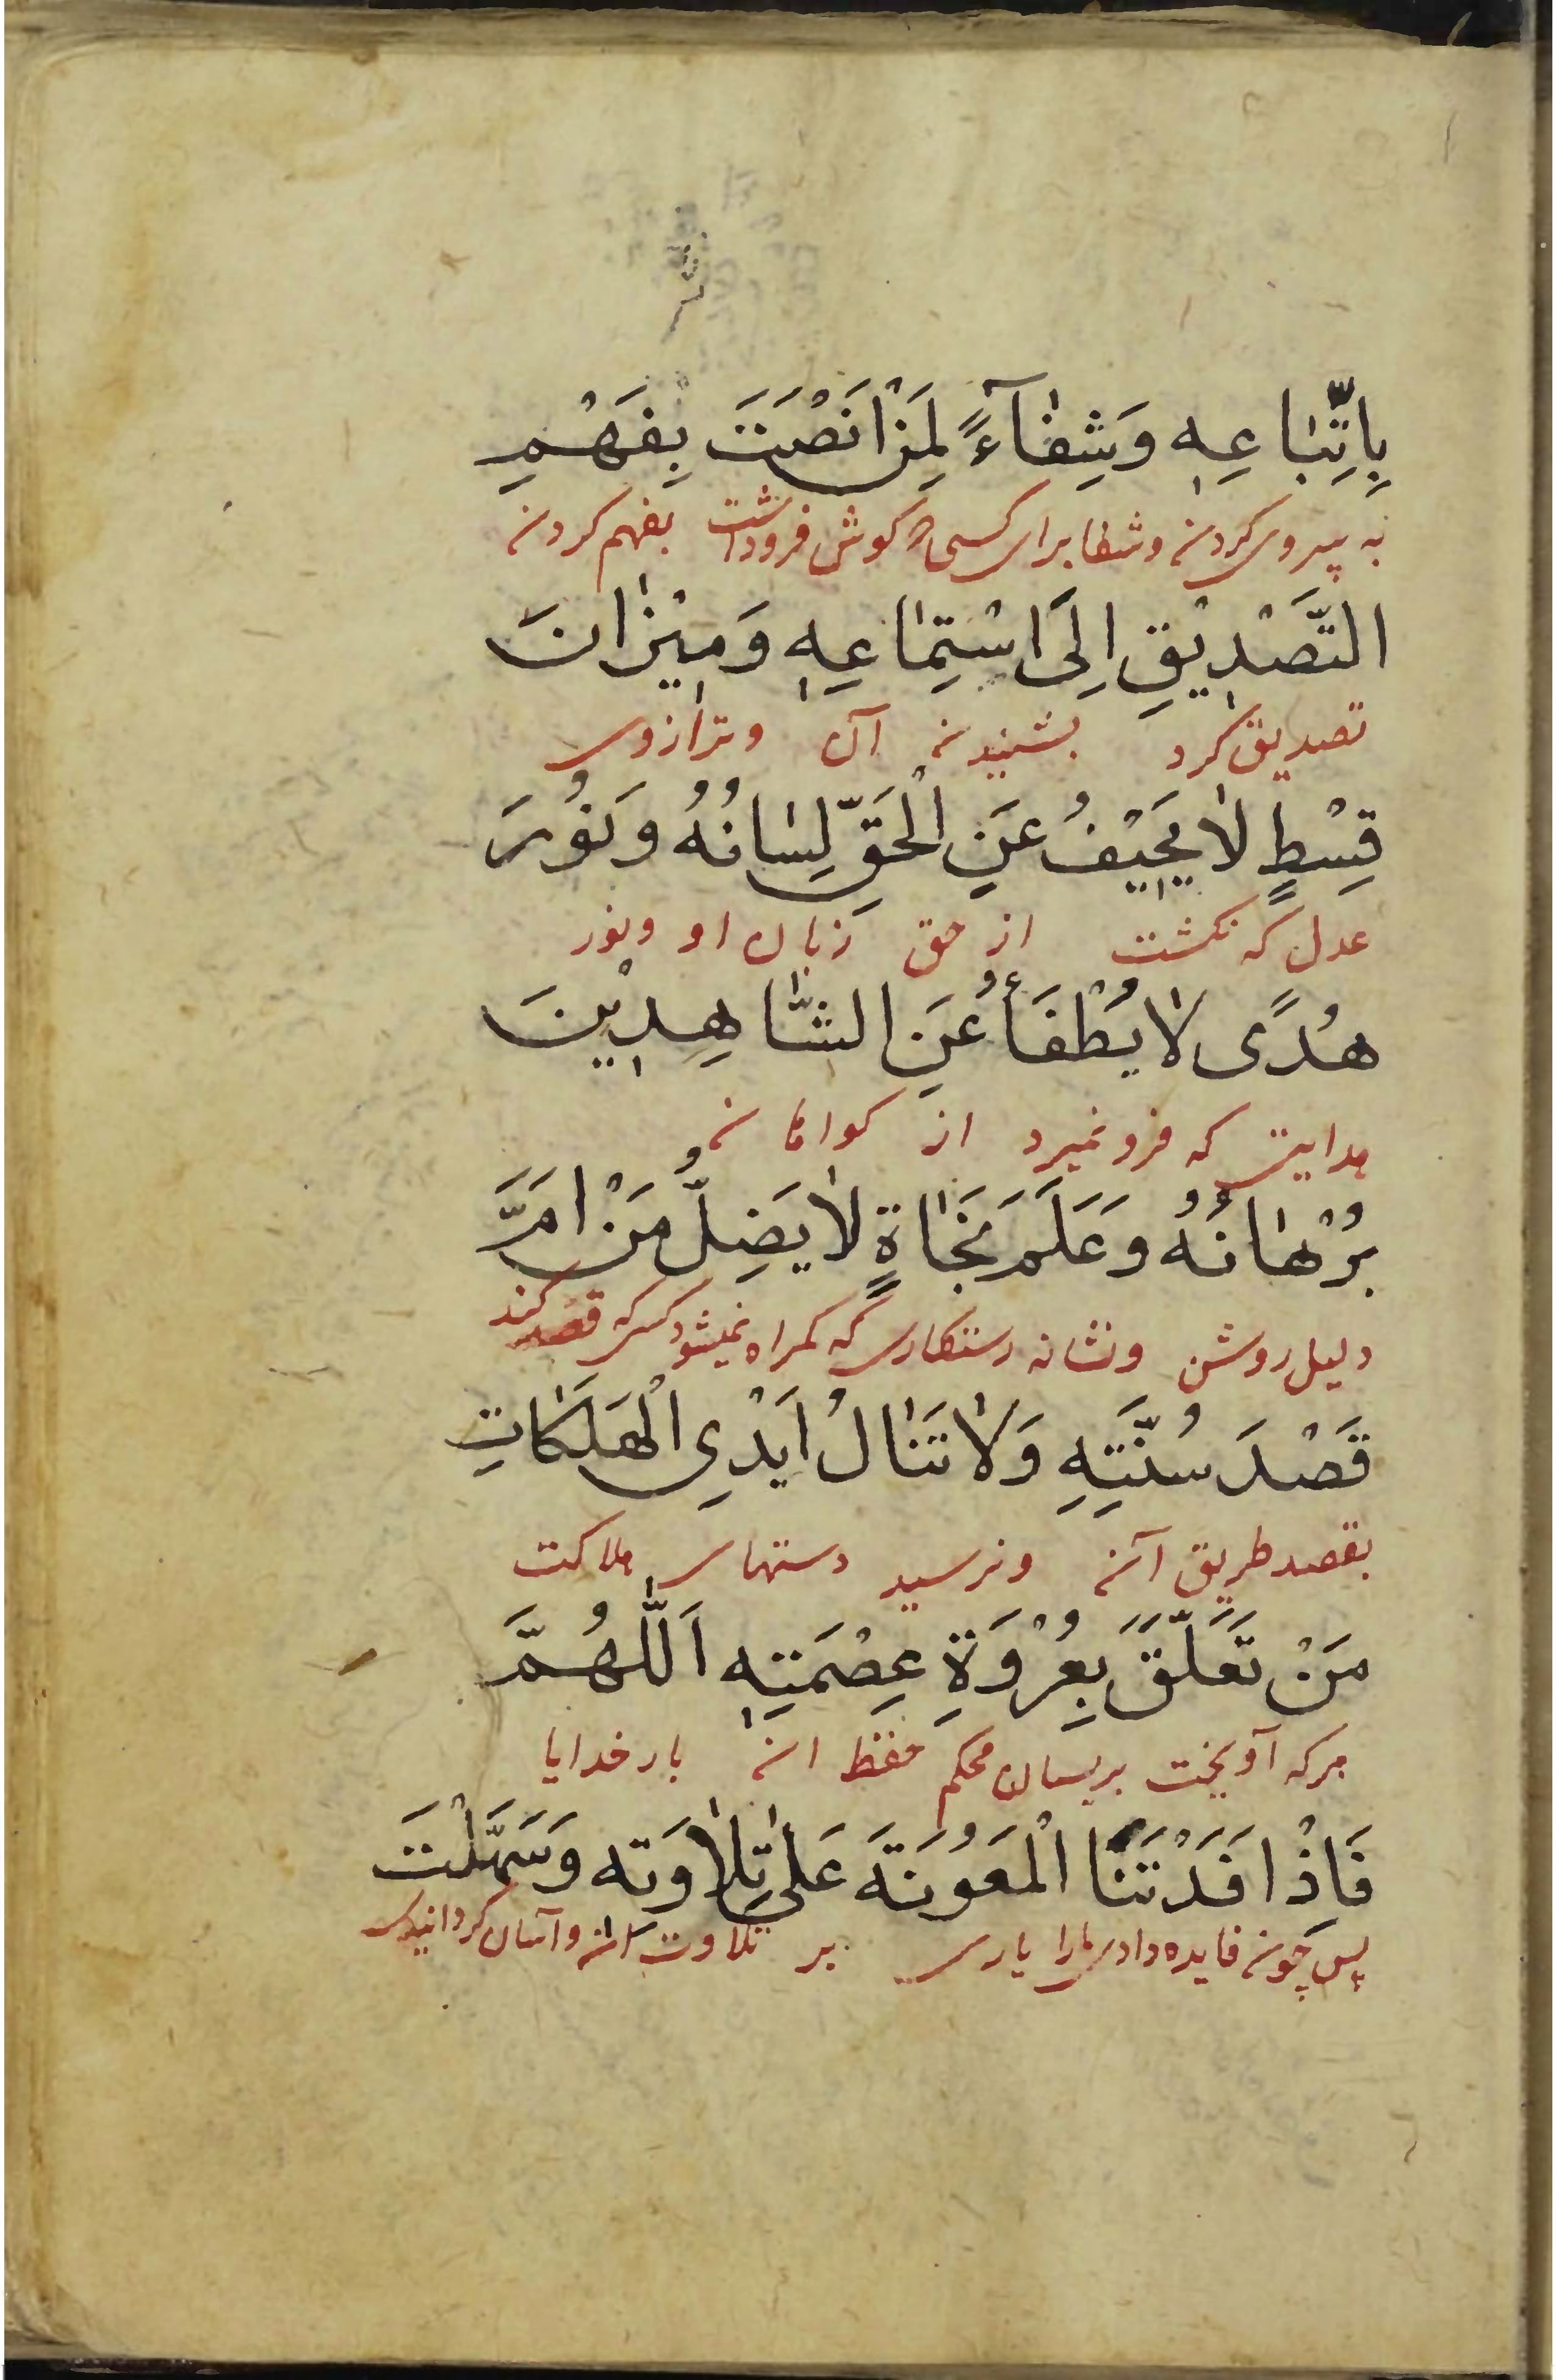 بِاتِّبَاعِهِ وَشِفَآءً لِمَنْ اَنْصَتَ بِفَهْمِ
به پیروی کردن و شفا برای کسی که کوش فروداشت بفهم کردن
التَّصْدِیْقِ اِلَی اسْتِمَاعِهِ وَمِیْزَانَ
تصدیق کرد بشنیدن آن وترازوی
قِسْطٍ لَا یَحِیْفُ عَنِ الْحَقِّ لِسَانُهُ وَنُوْرَ
عدل که نکشت از حق زبان او ونور
هُدًی لَا یُطْفَأُ عَنِ الشَّاهِدِیْنَ
هدایتی که فرو نمیرد از کواهان
بُرْهَانُهُ وَعَلَمَ نَجَاةٍ لَا یَضِلُّ مَنْ اَمَّ
دلیل روشن ونشانه رستکاری که کمراه نمیشود کسی که قصد کند
قَصْدَ سُنَّتِهِ وَلَا تَنَالُ اَیْدِی الْهَلَکَاتِ
بقصد طریق آن ونرسید دستهای هلاکت
مَنْ تَعَلَّقَ بِعُرْوَةِ عِصْمَتِهِ اَللّٰهُمَّ
هرکه آویخت بریسمان محکم حفظ ان بار خدایا
فَاِذْ اَفَدْتَنَا الْمَعُوْنَةَ عَلٰی تِلَاوَتِه وَسَهَّلْتَ
پس چون فایده دادی مارا یاری بر تلاوت ان وآسان کردانیدی